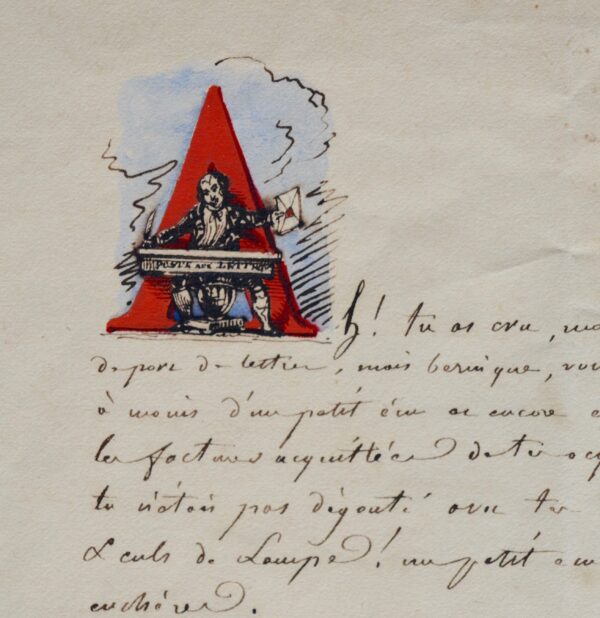 A
POSTE AUX LETTRES
h! tu as cru, mo
de port de lettres, mais bernique, vou
à moins d'un petit écu et encore
les factures acquittées de tes
tu n'étois pas dégouté avec tes
& culs de Lampe! un petit écu
enchères.